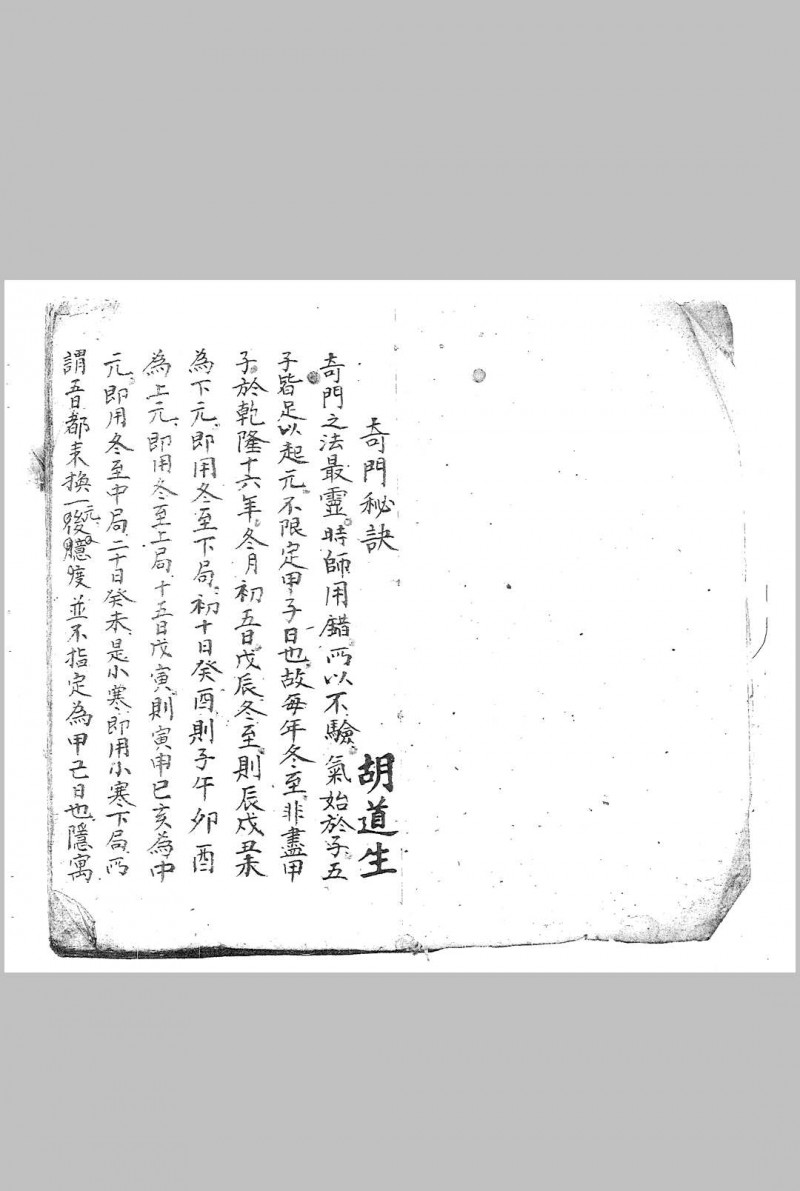 奇門秘訣
胡道生
奇門之法最靈時師用錯所以不驗氣始於子五
子皆足以起元不限定甲子日也故每年冬至非盡甲
子於乾隆十六年冬月初五日戊辰冬至則辰戌丑未
為下元即用冬至下局初十日癸酉則子午卯酉
為上元即用冬至上局十五日戊寅則寅申巳亥為中
元即用冬至中局二十日癸未是小寒即用小寒下局所
謂五日都來換一元後臆度並不指定為甲己日也隱寓